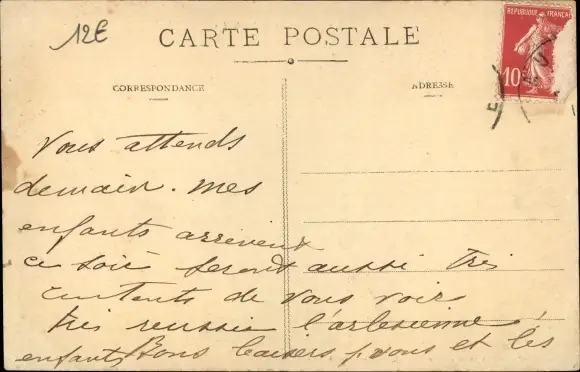 12€
CARTE POSTALE
REPUBLIQUE FRANÇAI
10
CORRESPONDANCE
ADRESSE
Vous attends
demain. mes
enfants arrivent
ce soir seront aussi très
contents de vous voir
très réussie l'arlésienne !
enfants Bons baisers p. vous et les